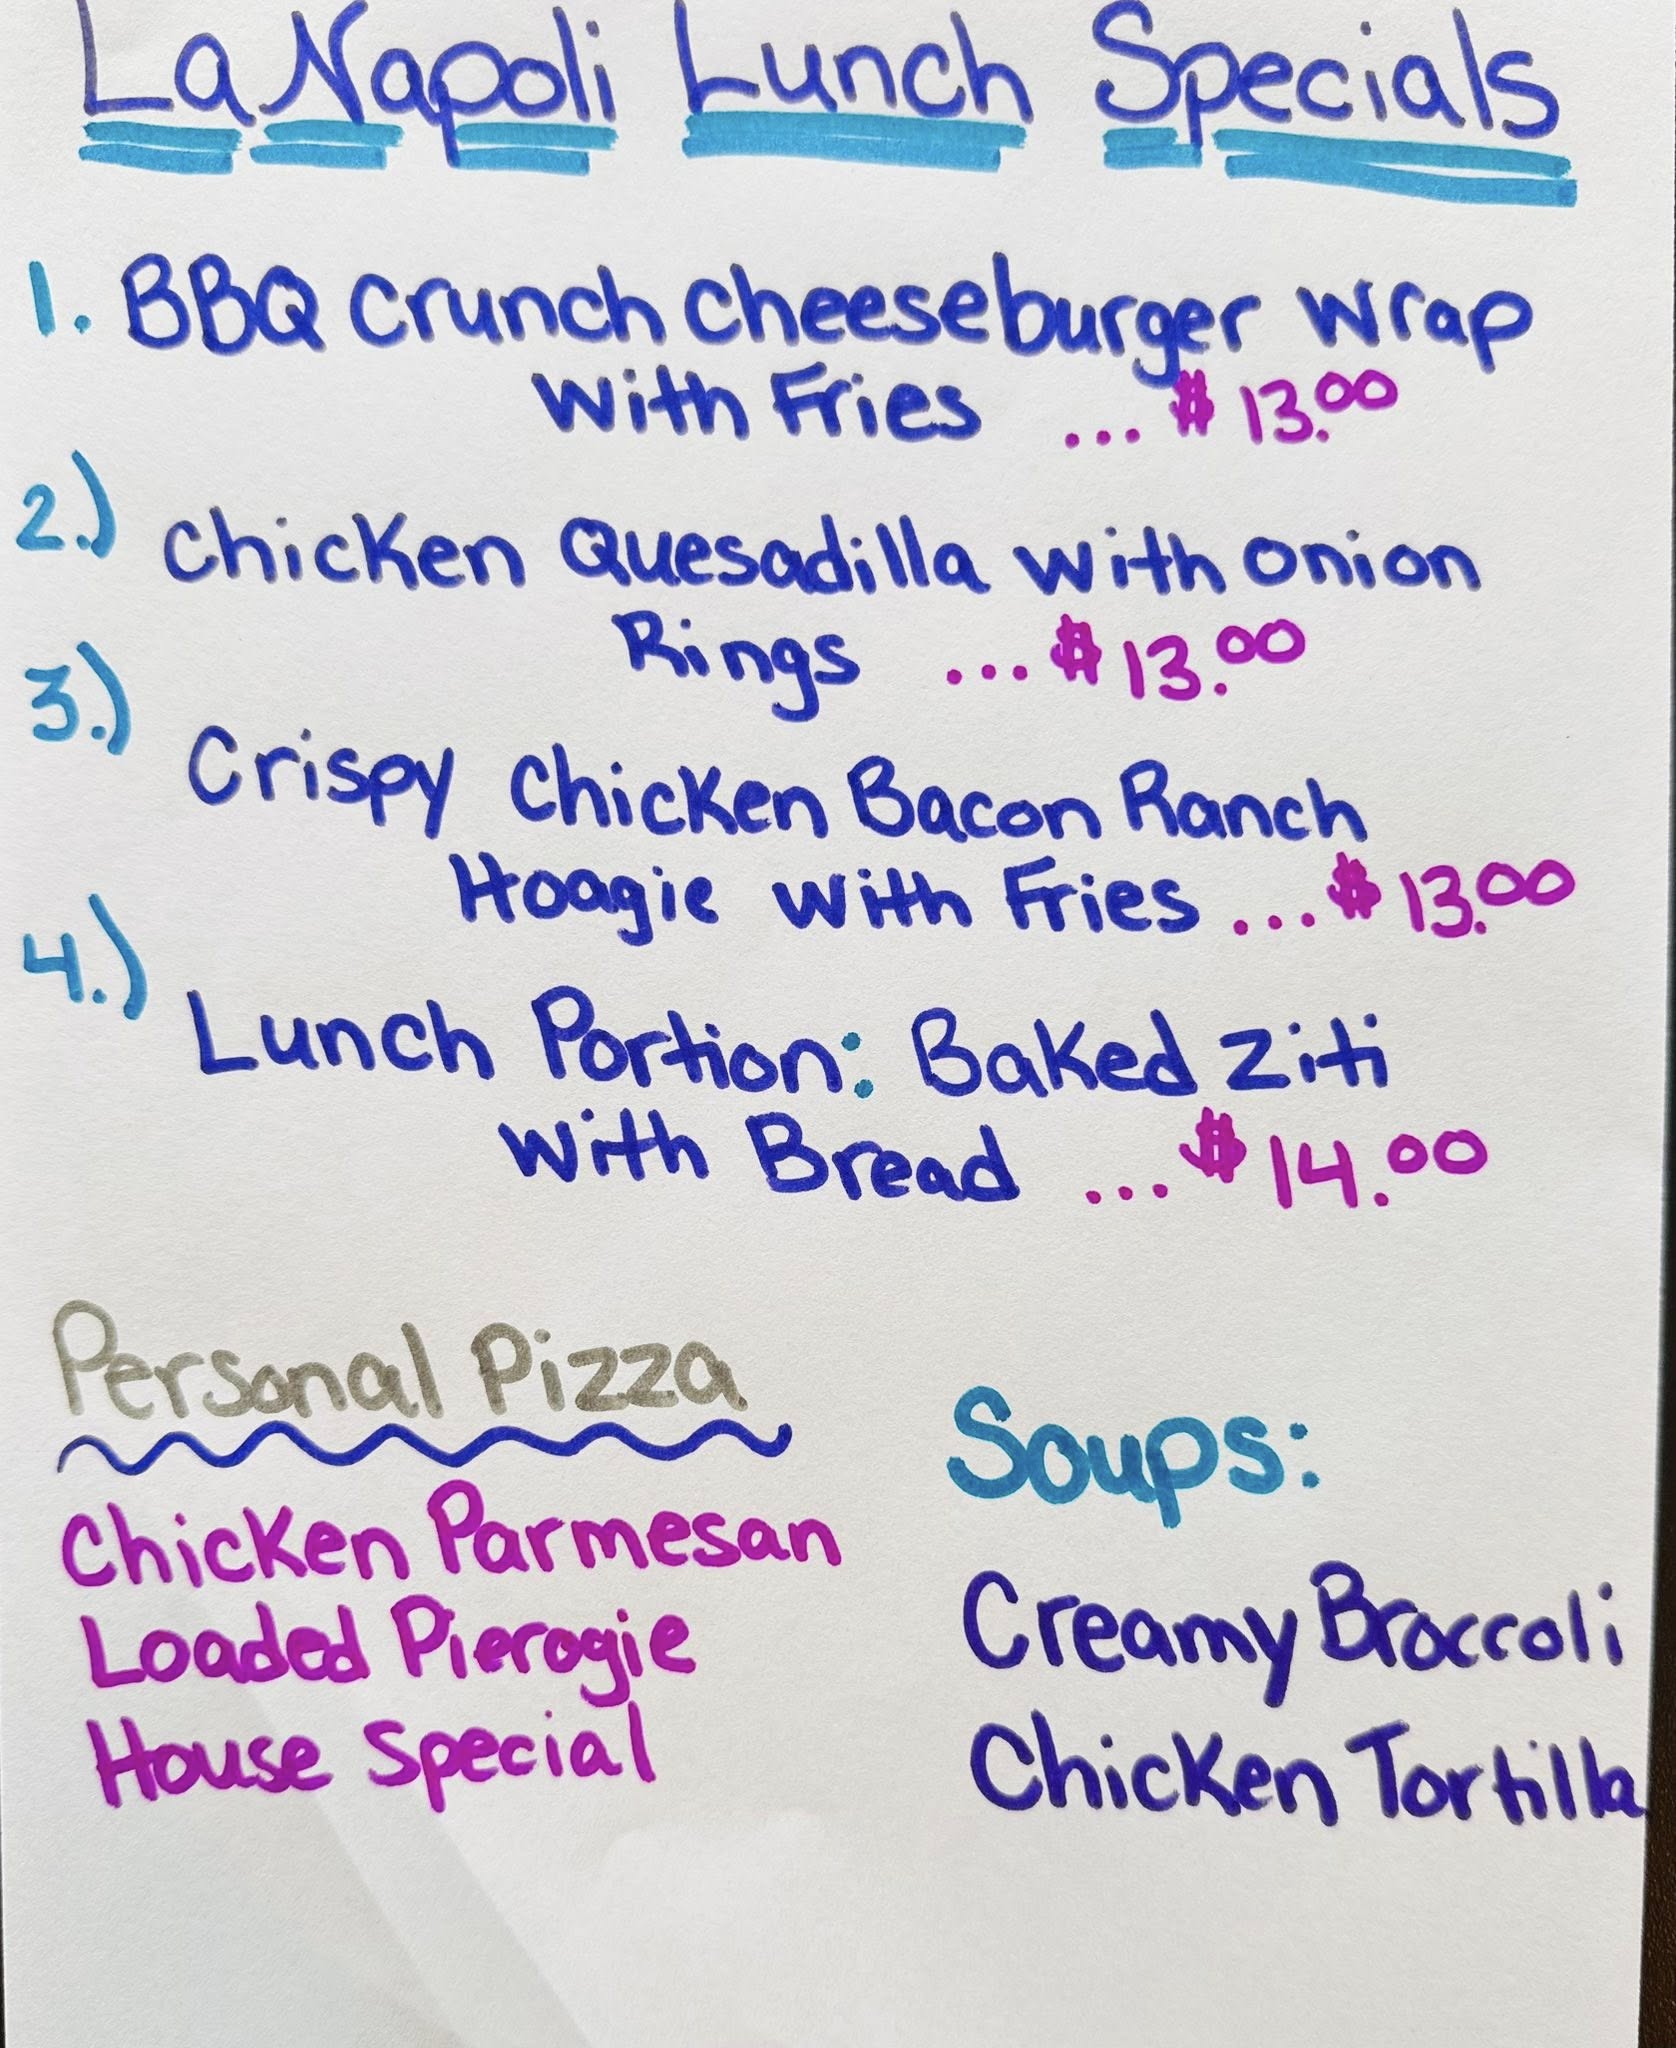 La Napoli Lunch Specials
1. BBQ Crunch Cheeseburger Wrap
With Fries ... $13.00
2.) Chicken Quesadilla with Onion
Rings ... $13.00
3.) Crispy Chicken Bacon Ranch
Hoagie with Fries ... $13.00
4.) Lunch Portion: Baked Ziti
with Bread ... $14.00
Personal Pizza
Chicken Parmesan
Loaded Pierogie
House Special
Soups:
Creamy Broccoli
Chicken Tortilla